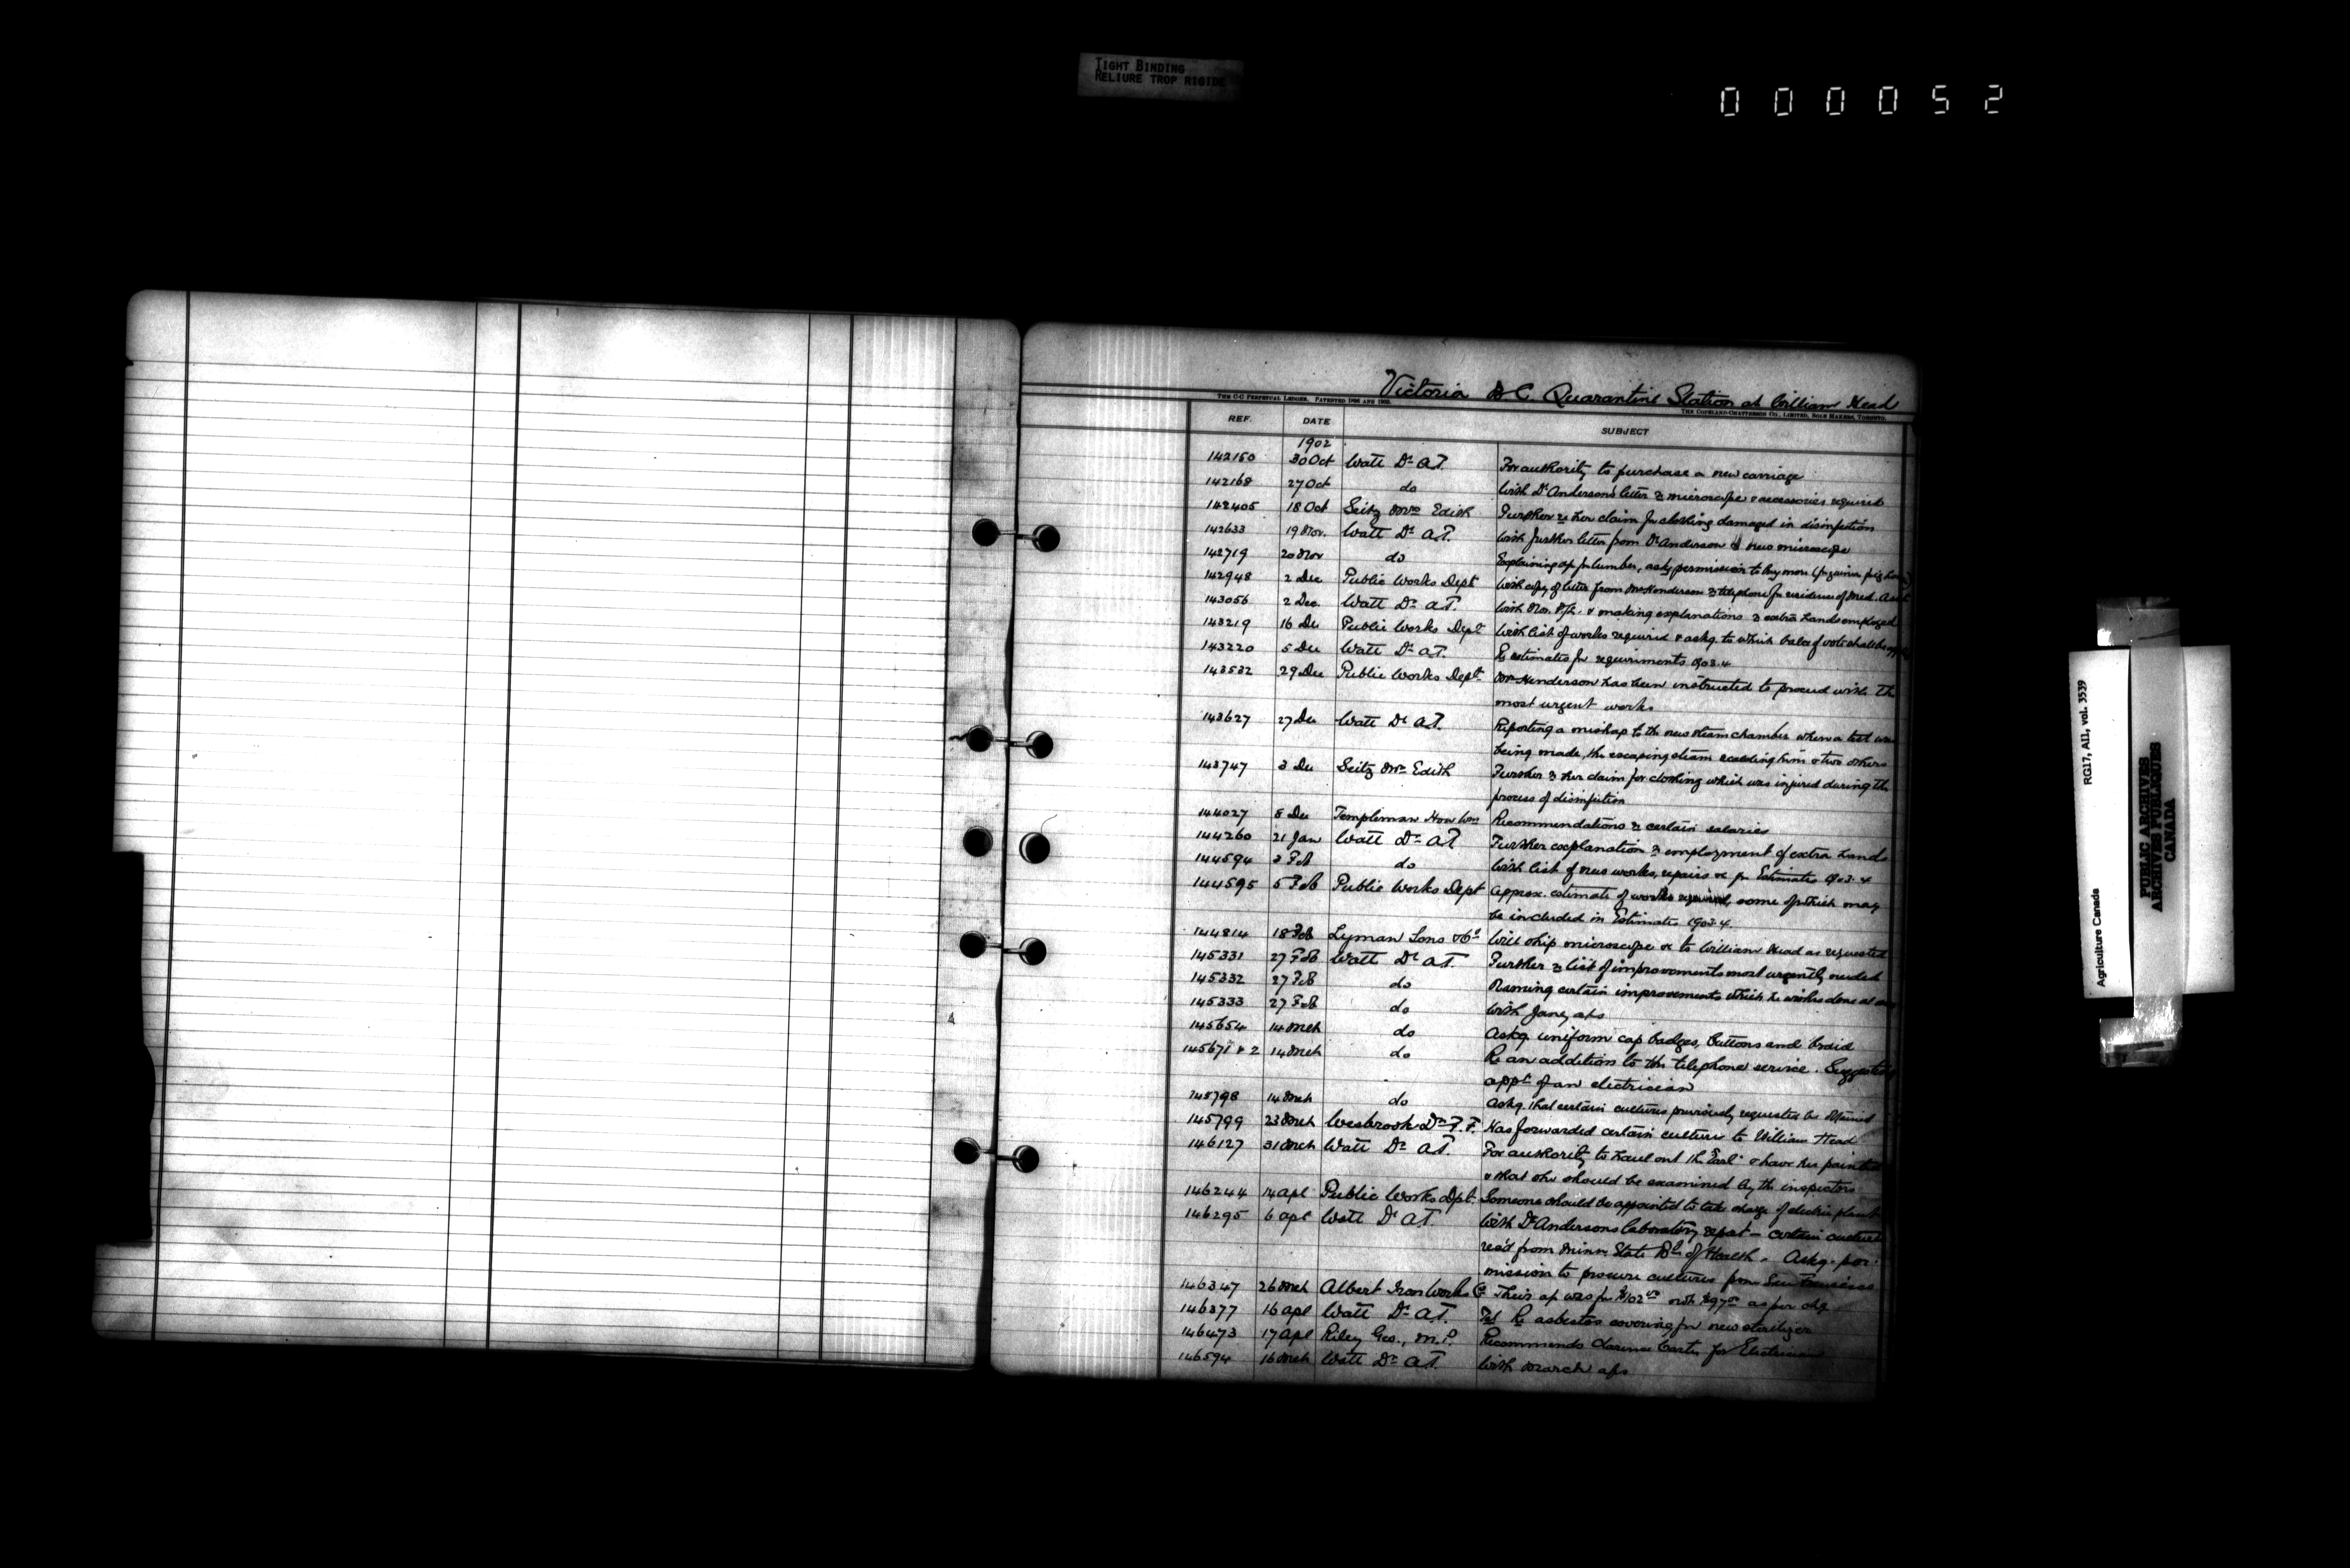 TIGHT BINDING
RELIURE TROP RIGIDE
000052
Victoria B C Quarantine Station at William Head
THE C-C PERPETUAL LEDGER. PATENTED 1896 AND 1902.
THE COPELAND-CHATTERSON CO., LIMITED, SOLE MAKERS, TORONTO.
REF. DATE SUBJECT
1902
142150 30 Oct Watt Dr A.T. For authority to purchase a new carriage
142168 27 Oct do With Dr Anderson's letter re microscope & accessories required
142405 18 Oct Seitz Mrs Edith Further re her claim for clothing damaged in disinfection
142633 19 Nov. Watt Dr A.T. With further letter from Dr Anderson re new microscope
142719 20 Nov do Explaining a/c for lumber, askg permission to buy more
142948 2 Dec Public Works Dept With copy of letter from Mr Henderson re telephone for residence of Med. Asst
143056 2 Dec. Watt Dr A.T. With Nov. & making explanations re extra hands employed
143219 16 Dec Public Works Dept With list of works required & askg. to which
143220 5 Dec Watt Dr A.T. Re estimates for requirements 1903.4
143532 29 Dec Public Works Dept. Mr Henderson has been instructed to proceed with the
most urgent works
143627 27 Dec Watt Dr A.T. Reporting a mishap to the new steam chamber when a test was
being made, the escaping steam scalding him & two others
143747 3 Dec Seitz Mrs Edith Further re her claim for clothing which was injured during the
process of disinfection
144027 8 Dec Templeman Hon Wm Recommendations re certain salaries
144260 21 Jan Watt Dr A.T. Further explanation re employment of extra hands
144594 3 Feb do With list of new works, repairs &c for Estimates 1903.4
144595 5 Feb Public Works Dept Approx. estimate of works required, some of which may
be included in Estimates 1903.4.
144814 18 Feb Lyman Sons & Co Will ship microscope &c to William Head as requested
145331 27 Feb Watt Dr A.T. Further re list of improvements most urgently needed
145332 27 Feb do Naming certain improvements which he wishes done at
145333 27 Feb do With Jany a/cs
145654 14 Mch do Askg. uniform cap badges, buttons and braid
145671 & 2 14 Mch do Re an addition to the telephone service. Suggesting
appt of an electrician
145798 14 Mch do Askg. that certain cultures previously requested be obtained
145799 23 Mch Wesbrook Dr F.F. Has forwarded certain cultures to William Head
146127 31 Mch Watt Dr A.T. For authority to haul out the "Earl" & have her painted
& that she should be examined by the inspectors
146244 14 Apl Public Works Dpt. Someone should be appointed to take charge of electric plant
146295 6 Apl Watt Dr A.T. With Dr Andersons laboratory report - certain cultures
rec'd from Minn State Bd of Health. Askg. per-
mission to procure cultures from San Francisco
146347 26 Mch Albert Iron Works Co Their a/c was for $102 not $97 as per chq
146377 16 Apl Watt Dr A.T. Re asbestos covering for new sterilizer
146473 17 Apl Riley Geo., M.P. Recommends Clarence Carter for Electrician
146594 16 Mch Watt Dr A.T. With March a/cs
Agriculture Canada RG17, AII, vol. 3539
PUBLIC ARCHIVES
ARCHIVES PUBLIQUES
CANADA